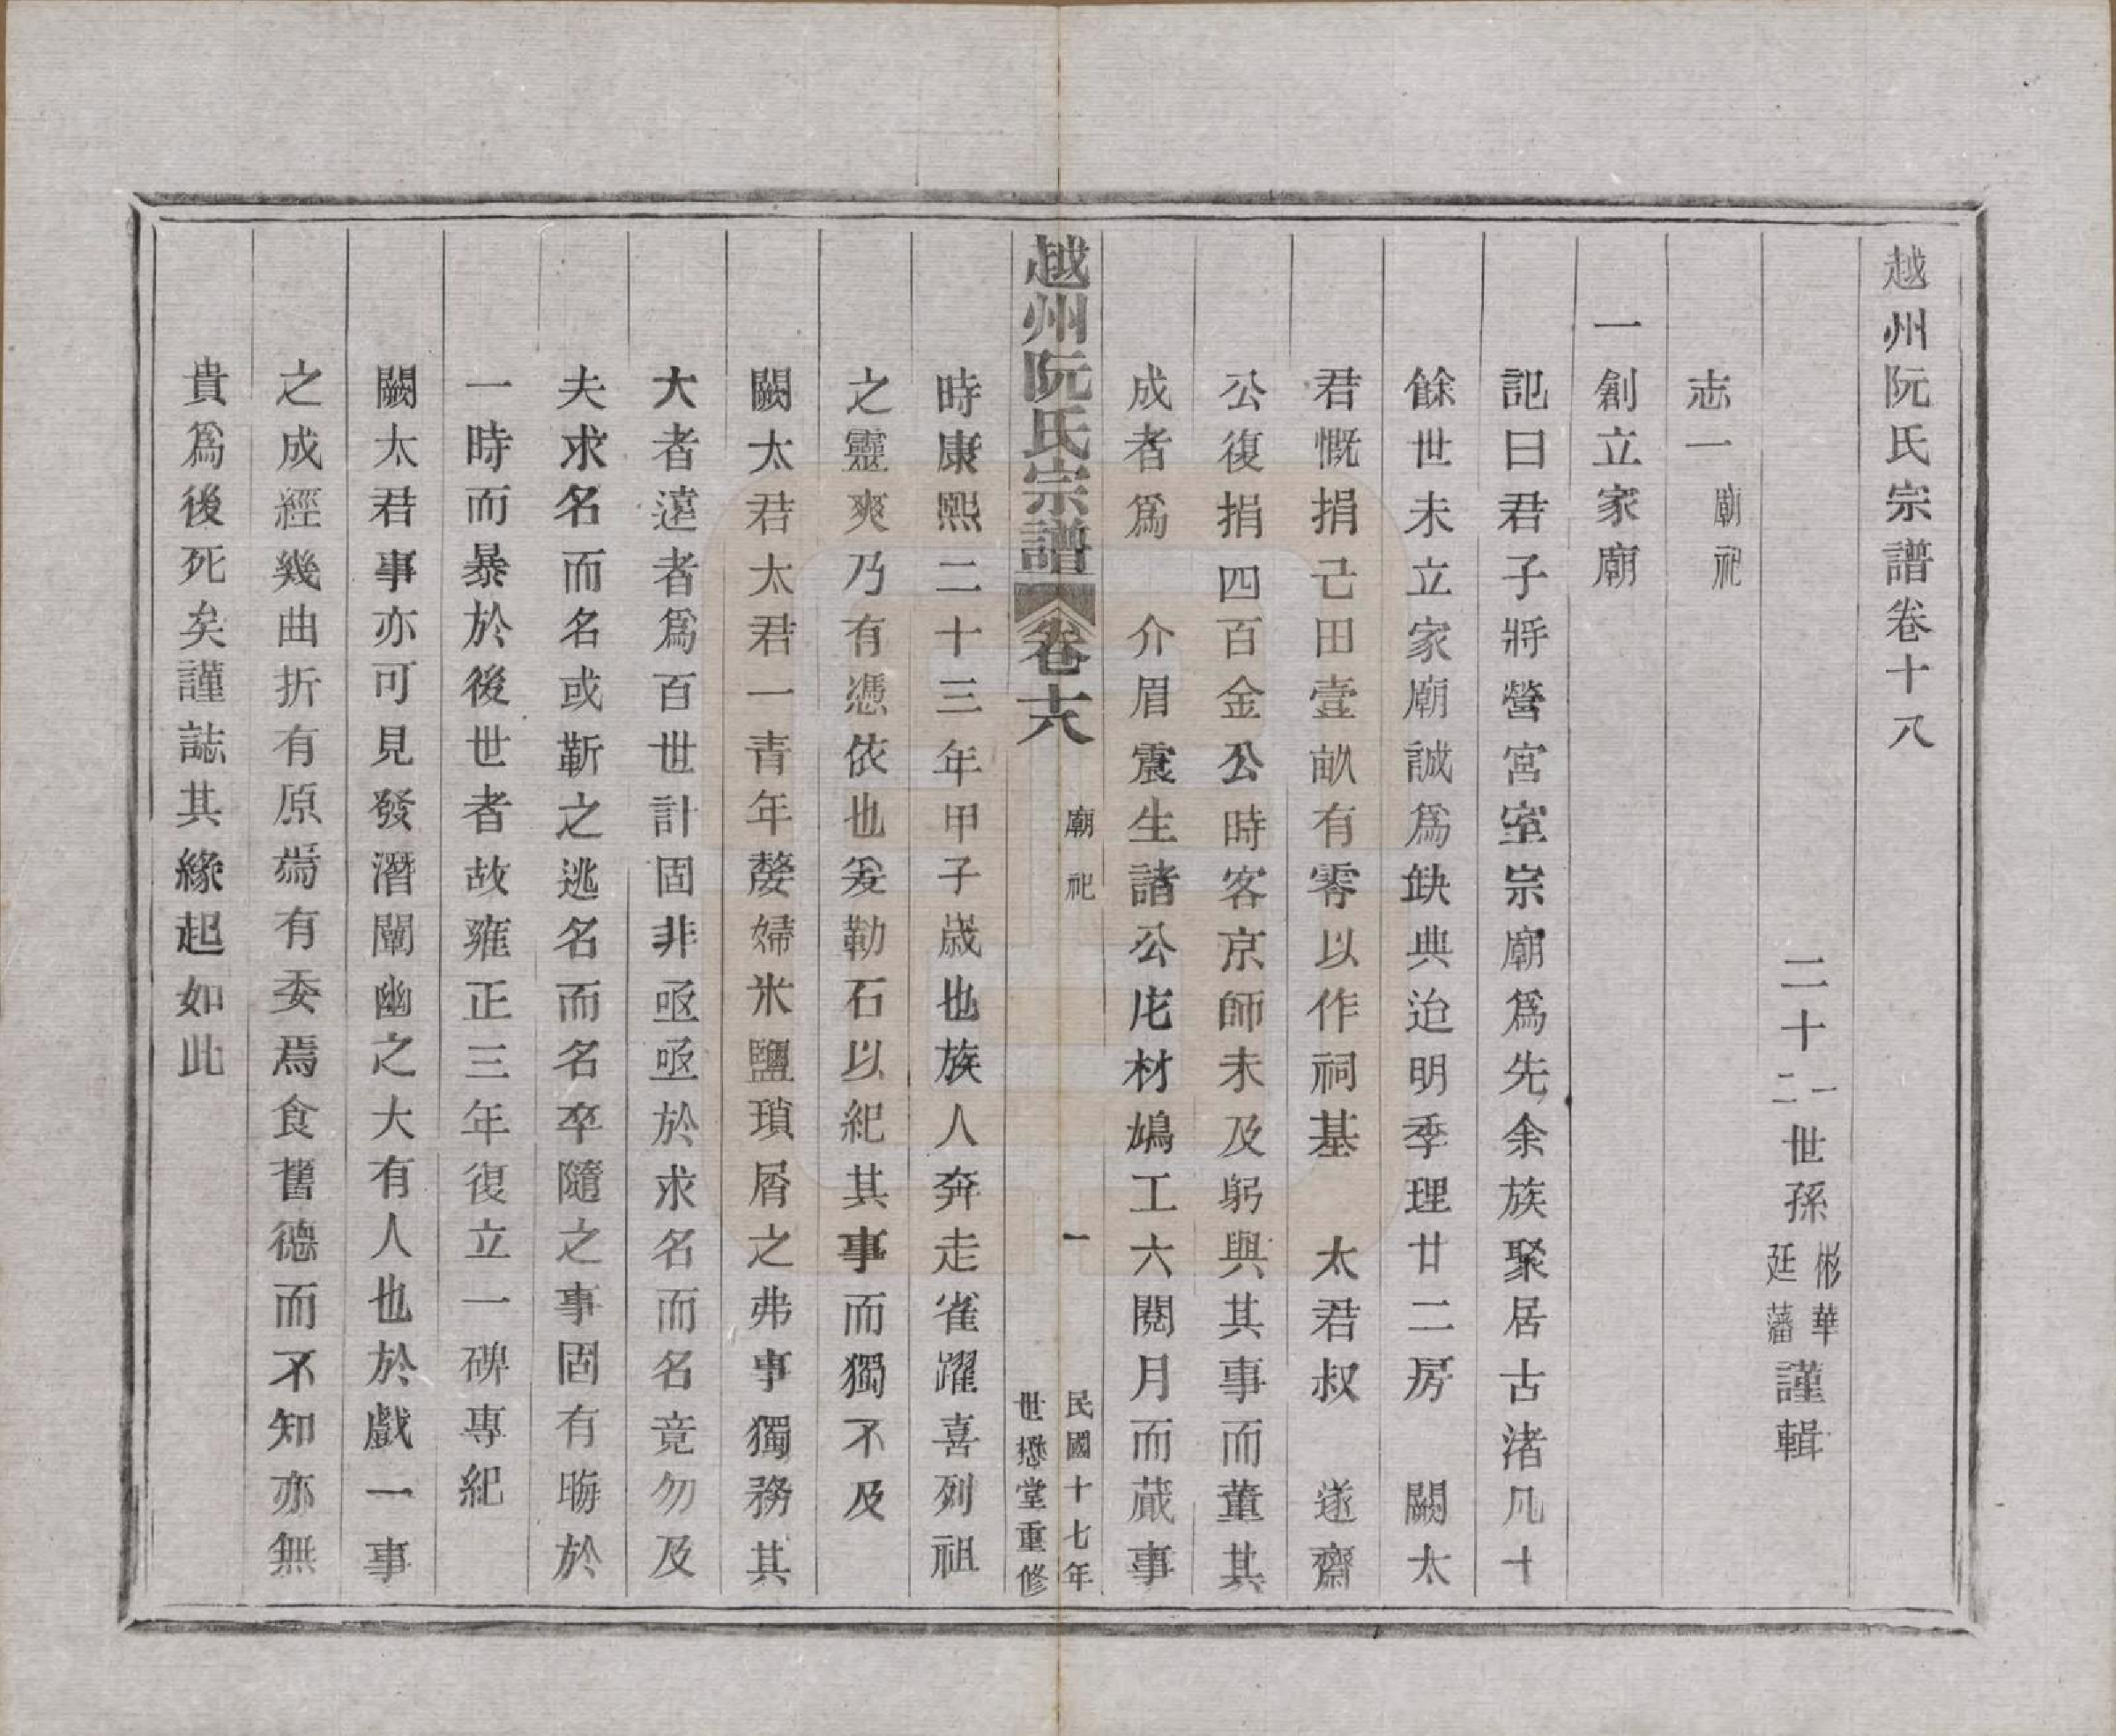 越州阮氏宗譜卷十八
二十一二世孫彬華廷藩謹輯
志一 廟祀
一創立家廟
記曰君子將營宮室宗廟爲先余族聚居古渚凡十
餘世未立家廟誠爲缺典迨明季理廿二房 闕太
君慨捐己田壹畝有零以作祠基 太君叔 遂齋
公復捐四百金公時客京師未及躬與其事而董其
成者爲 介眉震生諸公庀材鳩工六閱月而蕆事
越州阮氏宗譜 卷十八 廟祀 一 民國十七年 世懋堂重修
時康熙二十三年甲子歲也族人奔走雀躍喜列祖
之靈爽乃有憑依也爰勒石以紀其事而獨不及
闕太君太君一青年嫠婦米鹽瑣屑之弗事獨務其
大者遠者爲百世計固非亟亟於求名而名竟勿及
夫求名而名或靳之逃名而名卒隨之事固有晦於
一時而暴於後世者故雍正三年復立一碑專紀
闕太君事亦可見發潛闡幽之大有人也於戲一事
之成經幾曲折有原焉有委焉食舊德而不知亦無
貴爲後死矣謹誌其緣起如此